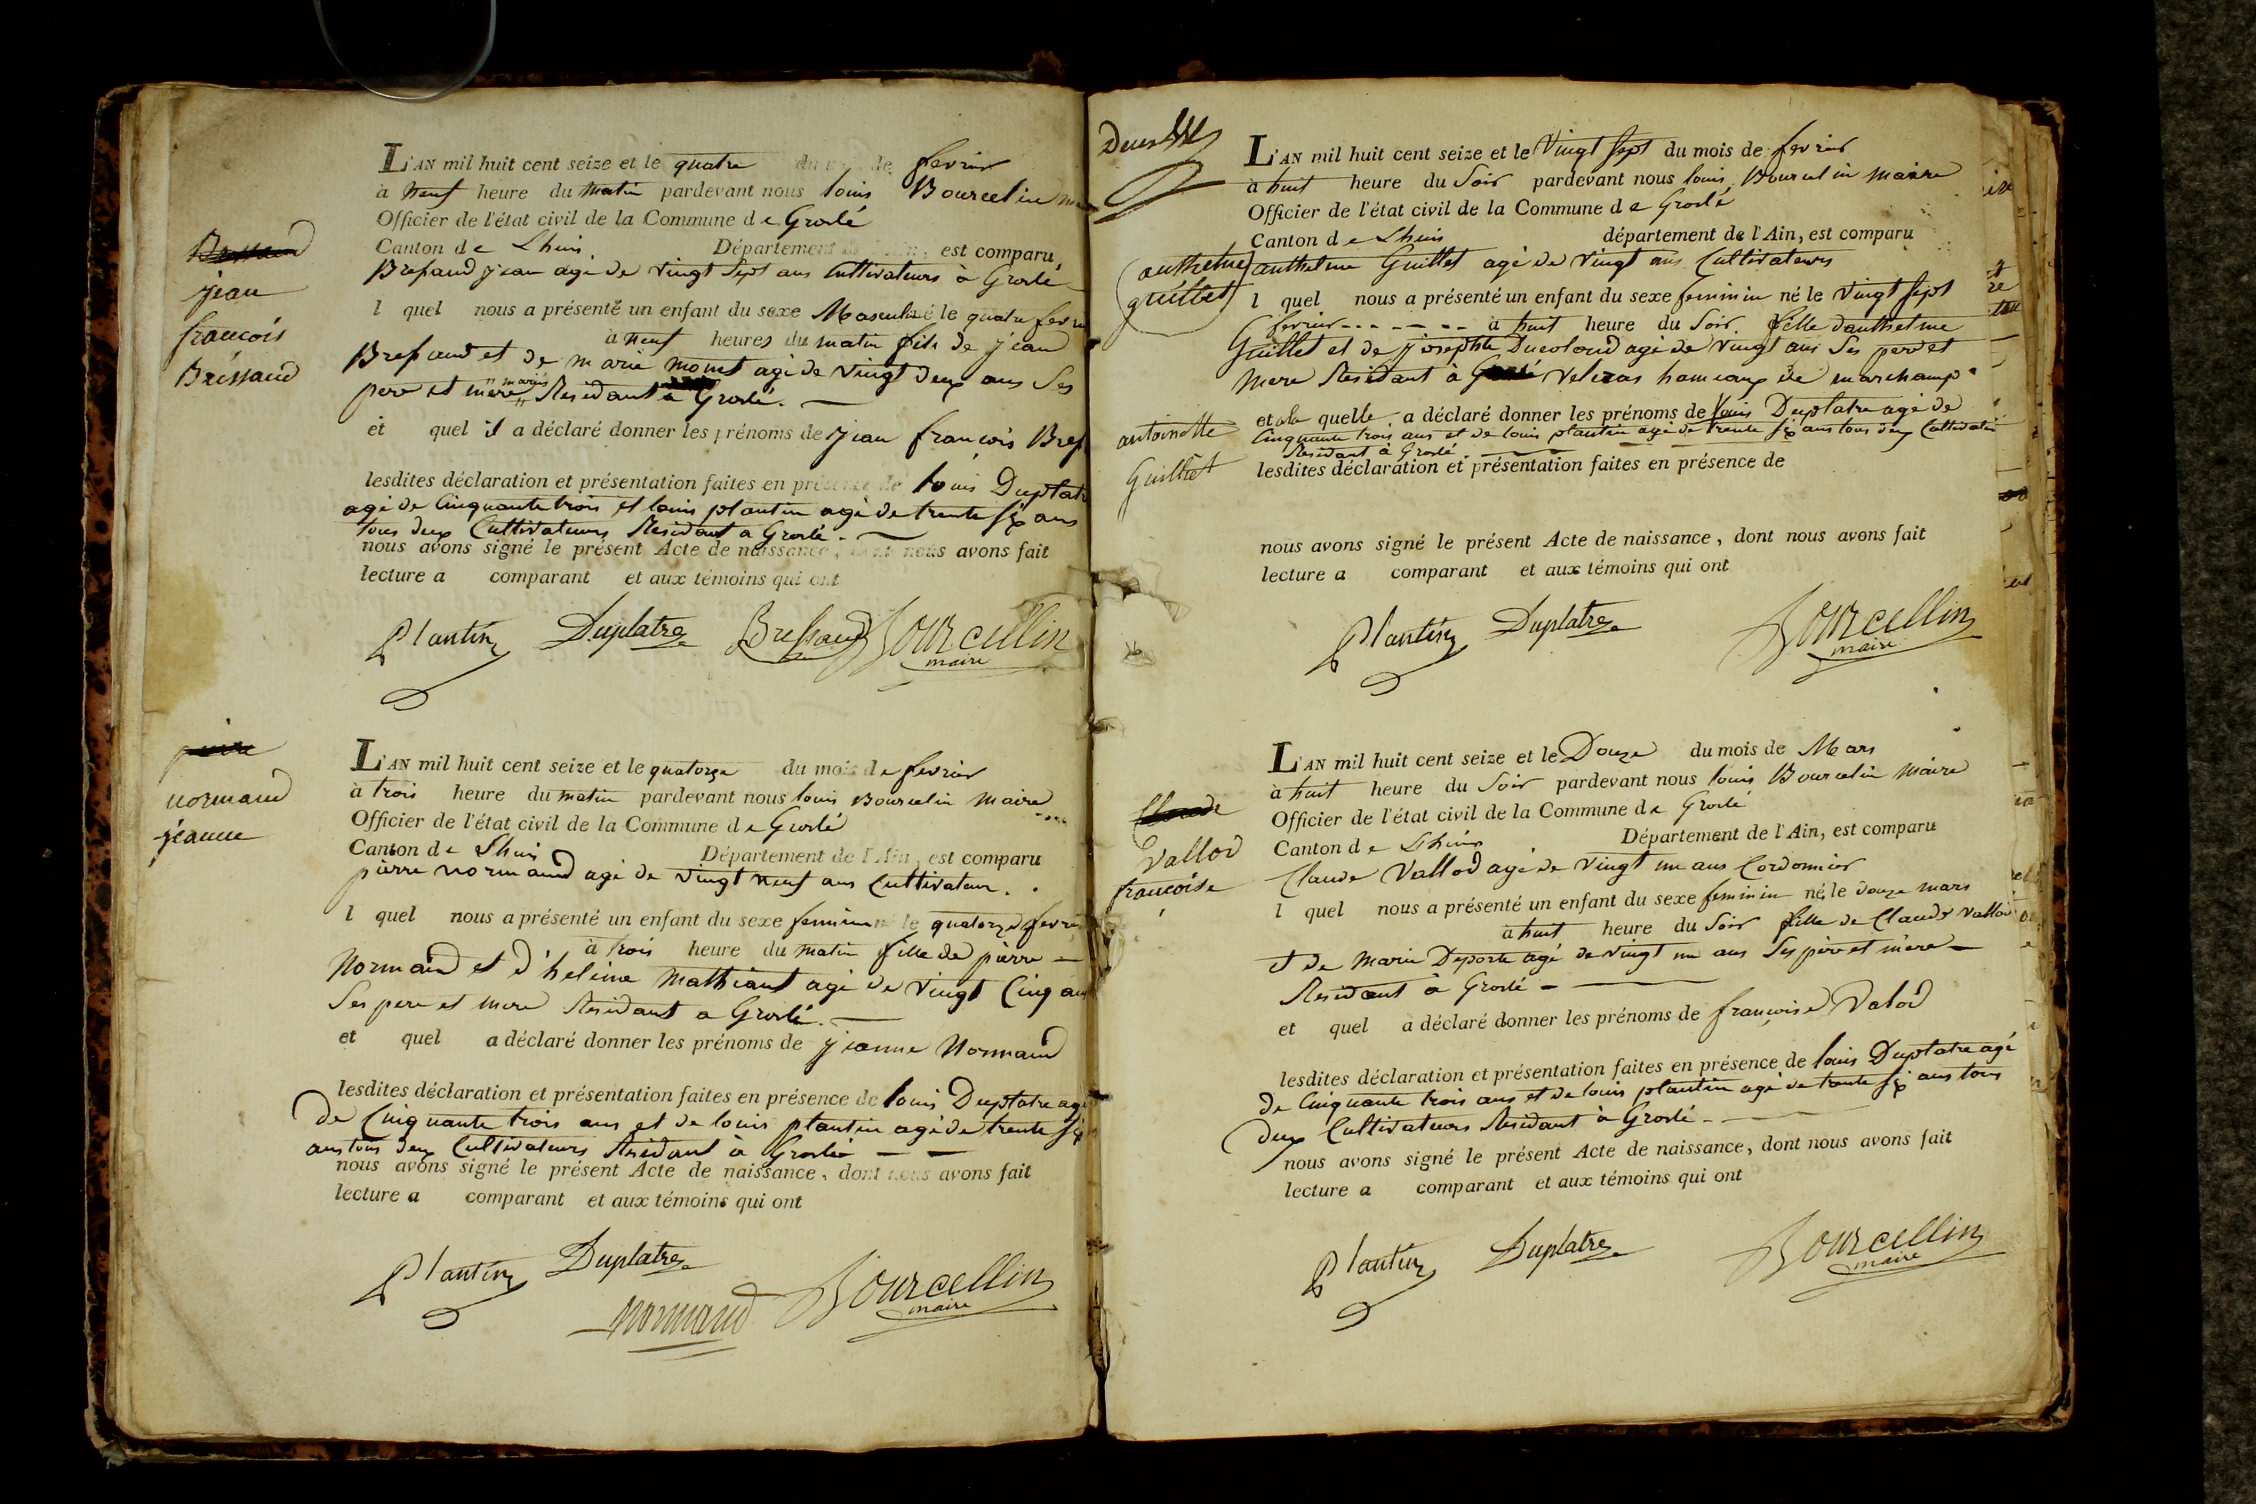 L'AN mil huit cent seize et le quatre du mois de fevrier
à neuf heure du matin pardevant nous louis Bourcelin
Officier de l'état civil de la Commune de Groslé
Canton de Lhuis Département de l'Ain, est comparu
Bressaud jean agé de vingt sept ans Cultivateurs à Groslé
l quel nous a présenté un enfant du sexe Masculin né le quatre fevrier
à neuf heures du matin fils de jean
Bressaud et de marie monet agé de vingt deux ans Ses
pere et mere mariés Residant à Groslé. —
et quel il a déclaré donner les prénoms de jean françois
lesdites déclaration et présentation faites en présence de louis Duplatre
agé de Cinquante trois et louis plantin agé de trente six ans
tous deux Cultivateurs Residant a Groslé. —
nous avons signé le présent Acte de naissance, dont nous avons fait
lecture a comparant et aux témoins qui ont
Plantin Duplatre Bressaud Bourcellin
maire
jean
francois
Bressaud
L'AN mil huit cent seize et le quatorze du mois de fevrier
à trois heure du matin pardevant nous louis Bourcelin Maire
Officier de l'état civil de la Commune de Groslé
Canton de Lhuis Département de l'Ain, est comparu
pierre normand agé de vingt neuf ans Cultivateur.
l quel nous a présenté un enfant du sexe feminin né le quatorze fevrier
à trois heure du matin fille de pierre —
Normand et d'helene Mathiant agé de vingt Cinq ans
Ses pere et mere Residant a Groslé. —
et quel a déclaré donner les prénoms de jeanne Normand
lesdites déclaration et présentation faites en présence de louis Duplatre agé
de Cinquante trois ans et de louis plantin agé de trente six
ans tous deux Cultivateurs Residant à Groslé — —
nous avons signé le présent Acte de naissance, dont nous avons fait
lecture a comparant et aux témoins qui ont
Plantin Duplatre
normand Bourcellin
maire
pierre
normand
jeanne
L'AN mil huit cent seize et le Vingt sept du mois de fevrier
à huit heure du Soir pardevant nous louis Bourcelin maire
Officier de l'état civil de la Commune de Groslé
Canton de Lhuis département de l'Ain, est comparu
anthelme Guillet agé de vingt ans Cultivateurs
l quel nous a présenté un enfant du sexe feminin né le vingt sept
fevrier - - - - - - à huit heure du Soir. fille d'anthelme
Guillet et de josephte Ducoloud agé de vingt ans Ses pere et
mere Residant à Veleras hameaux de marchamp
et a la quelle a déclaré donner les prénoms de louis Duplatre agé de
Cinquante trois ans et de louis plantin agé de trente six ans tous deux Cultivateur
Residant à Groslé
lesdites déclaration et présentation faites en présence de
nous avons signé le présent Acte de naissance, dont nous avons fait
lecture a comparant et aux témoins qui ont
Plantin Duplatre Bourcellin
maire
anthelme
guillet
antoinette
Guillet
L'AN mil huit cent seize et le Douze du mois de Mars
à huit heure du Soir pardevant nous louis Bourcelin Maire
Officier de l'état civil de la Commune de Groslé
Canton de Lhuis Département de l'Ain, est comparu
Claude Vallod agé de vingt un ans Cordonnier
l quel nous a présenté un enfant du sexe feminin né le douze mars
à huit heure du Soir fille de Claude vallod
et de marie Deporte agé de vingt un ans Ses pere et mere —
Residant à Groslé — —
et quel a déclaré donner les prénoms de françoise Valod
lesdites déclaration et présentation faites en présence de louis Duplatre agé
de Cinquante trois ans et de louis plantin agé de trente six ans tous
deux Cultivateurs Residant à Groslé — —
nous avons signé le présent Acte de naissance, dont nous avons fait
lecture a comparant et aux témoins qui ont
Plantin Duplatre Bourcellin
maire
Claude
Vallod
francoise